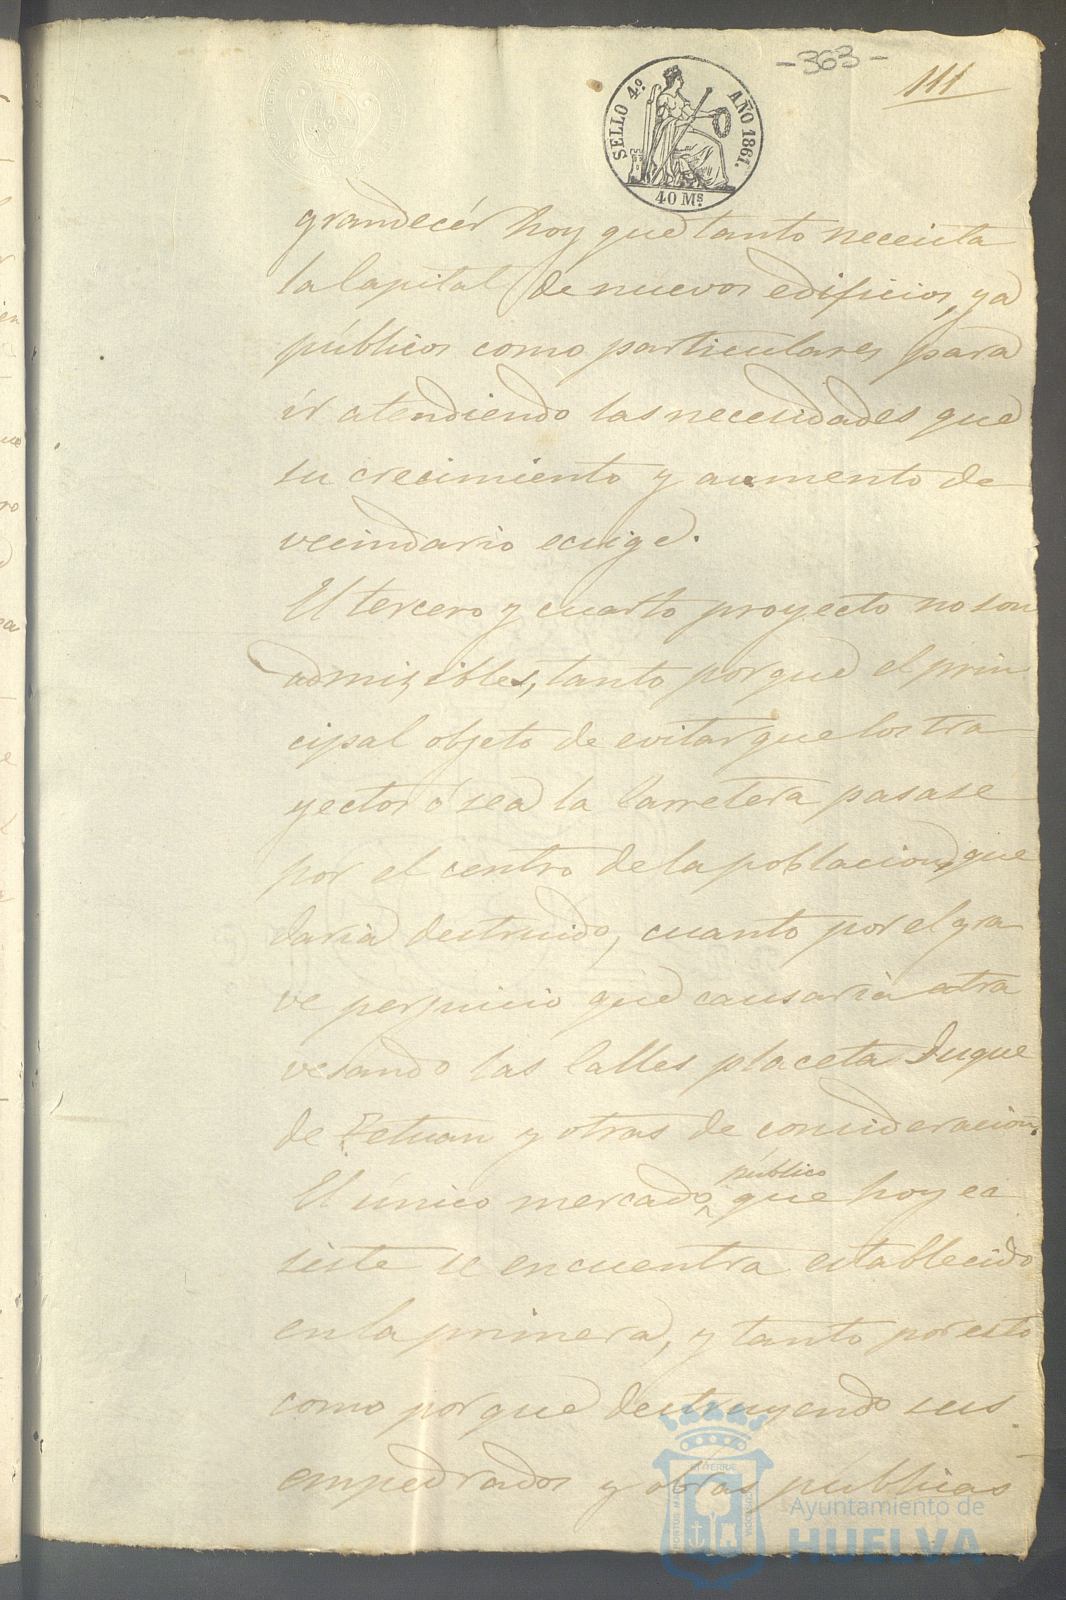 -363-
111
SELLO 4.º AÑO 1861.
40 Ms.
grandecér hoy que tanto necesita
la Capital de nuevos edificios, ya
públicos como particulares para
ir atendiendo las necesidades que
su crecimiento y aumento de
vecindario ecsige.
El tercero y cuarto proyecto no son
admisibles, tanto porque el prin
cipal objeto de evitar que los tra
yectos ó sea la Carretera pasase
por el centro de la poblacion, que
daria destruido, cuanto por el gra
ve perjuicio que causaria atra
vesando las Calles placeta Duque
de Tetuan y otras de consideracion.
público
El único mercado que hoy ec
siste se encuentra establecido
en la primera, y tanto por esto
como porque destruyendo sus
empedrados y obras publicas
Ayuntamiento de
HUELVA